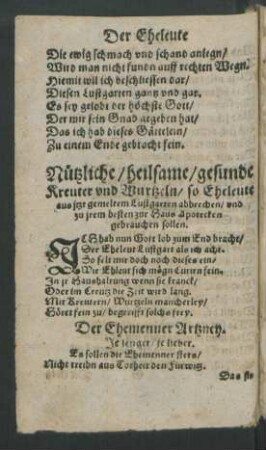 Der Eheleute
Die ewig schmach vnd schand anlegn/
Vnd man nicht funden auff rechten Wegn.
Hiemit wil ich beschliessen dar/
Diesen Lustgarten gantz vnd gar.
Es sey gelobt der höchste Gott/
Der mir sein Gnad gegeben hat/
Das ich hab dieses Gärtelein/
Zu einem Ende gebracht fein.
Nützliche/ heilsame/ gesunde
Kreuter vnd Wurtzeln/ so Eheleute
aus jtzt gemeltem Lustgarten abbrechen/ vnd
zu jrem besten zur Haus Apotecken
gebrauchen sollen.
ICh hab nun Gott lob zum End bracht/
Der Eheleut Lustgart als ich acht.
So felt mir doch noch dieses ein/
Wie Ehleut sich mögn
In jr Haushaltung wenn sie kranck/
Oder im Creutz die Zeit wird lang.
Mit Kreutern/ Wurtzeln mancherley/
Hört fein zu/ begreifft solchs frey.
Der Ehemenner Artzney.
Je lenger/ je lieber.
Es sollen die Ehemenner stets/
Nicht treibn aus Torheit den Fürwitz.
Das sie